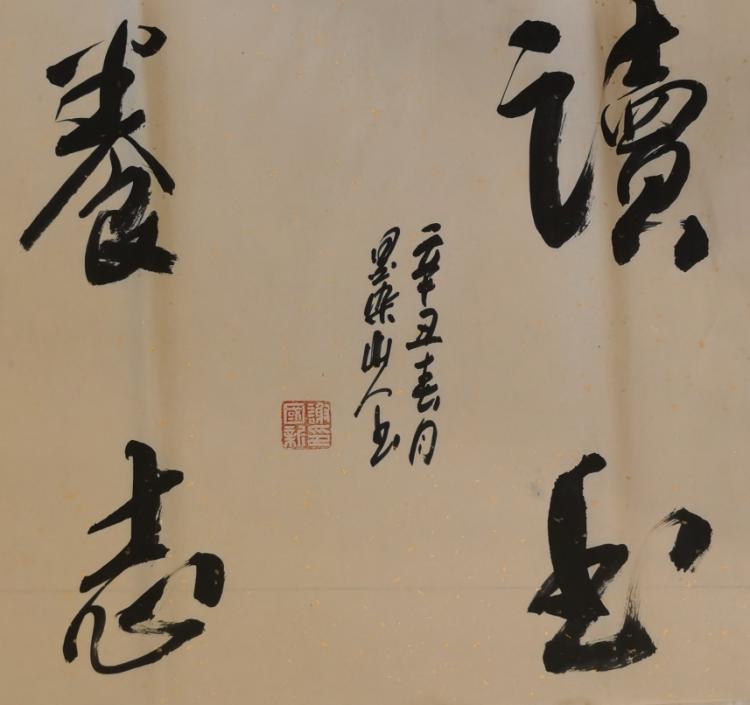 讀書
養志
辛丑春月
墨染山人書
謝國新印